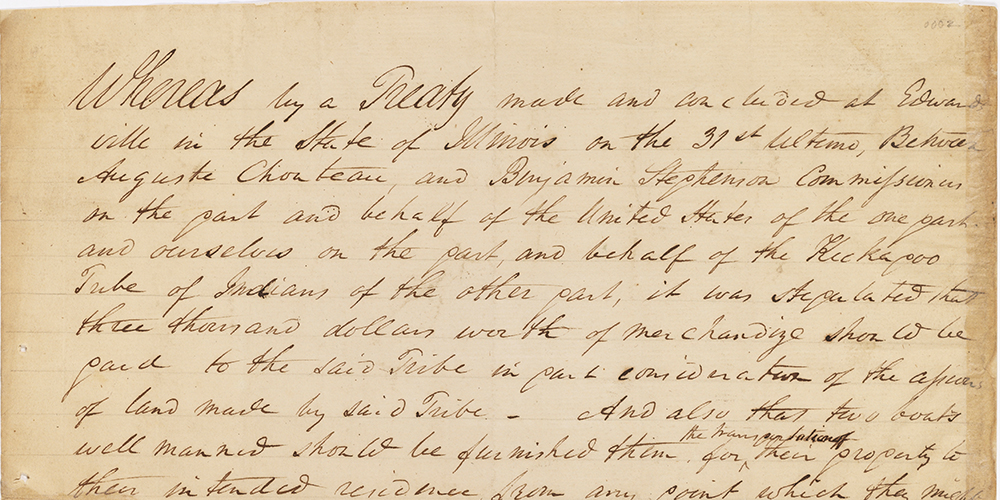 0002
Whereas by a Treaty made and concluded at Edward
ville in the State of Illinois on the 31st Ultimo, Between
Auguste Chouteau, and Benjamin Stephenson Commissioners
on the part and behalf of the United States of the one part
and ourselves on the part, and behalf of the Kickapoo
Tribe of Indians of the other part; it was stipulated that
three thousand dollars worth of merchandize should be
paid to the said Tribe in part consideration of the
of land made by said Tribe - And also that two boats
well manned should be furnished them, for the transportation of their property to
their intended residence from any point which they might